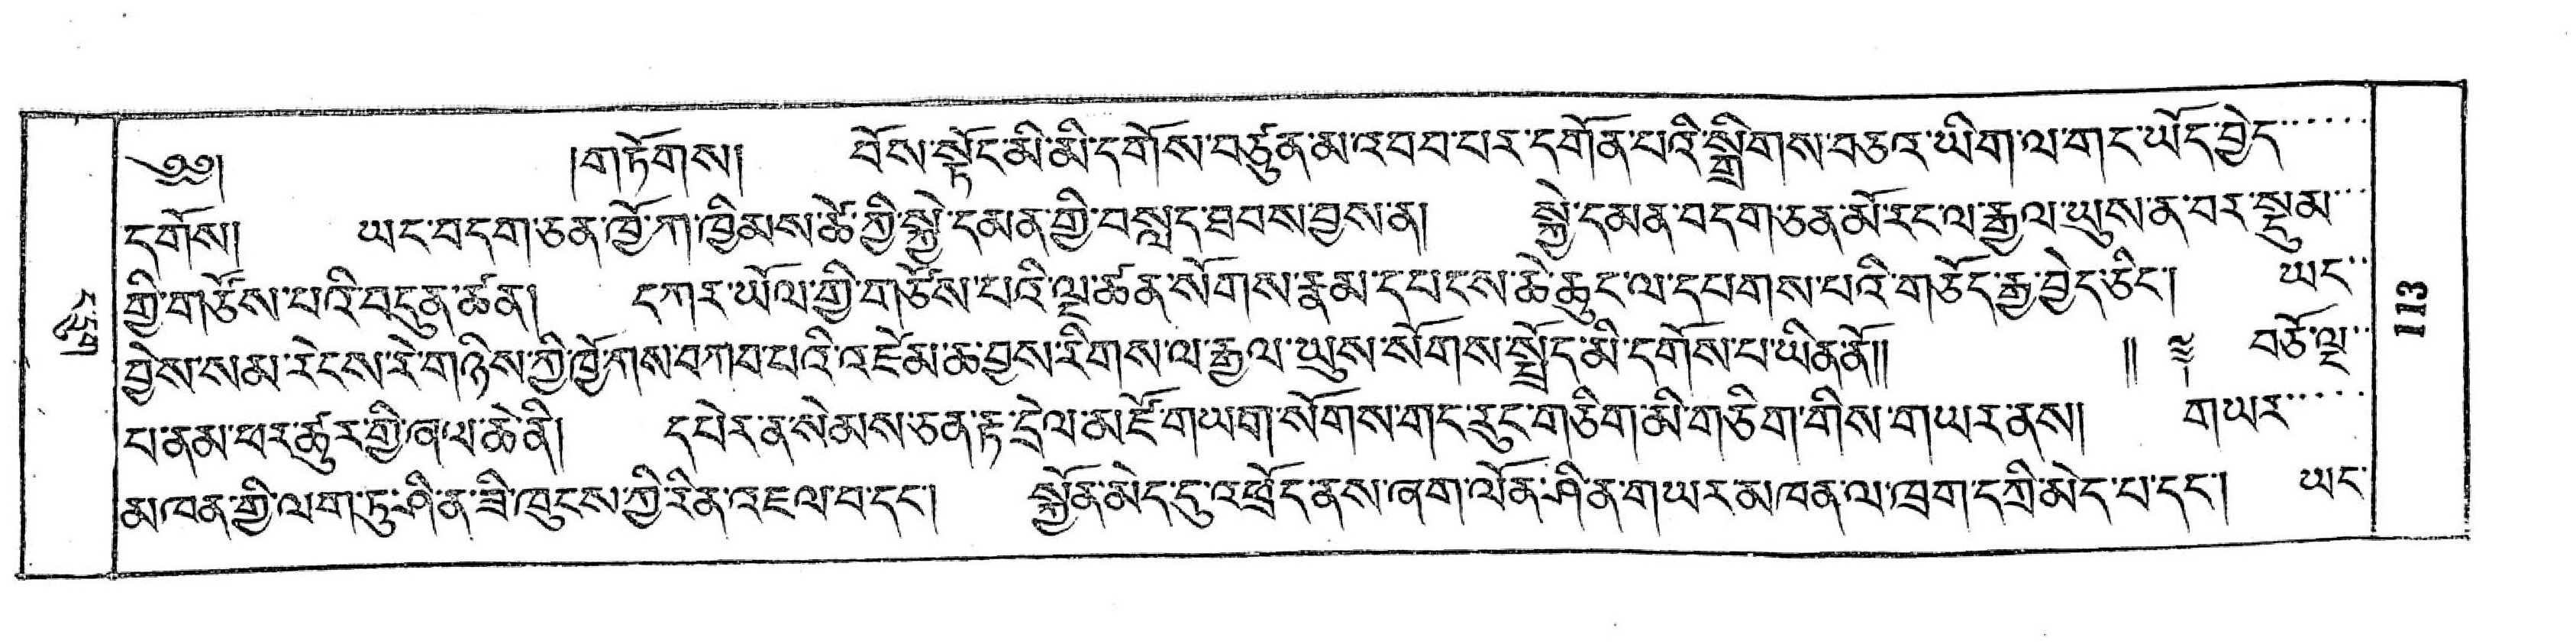 ༄༅། །གཏོགས། བོས་སྟོང་མི་མི་དགོས་བཙུན་མ་འབབ་པར་དགོན་པའི་སྒྲིགས་བཅའ་ཡིག་ལ་གང་ཡོད་བྱེད་
དགོས། ཡང་བདག་ཅན་ཁྱོ་ཀ་ཁྱིམས་ཚེ་ཀྱི་སྐྱེ་དམན་གྱི་བསླད་ཐབས་བྱས་ན། སྐྱེ་དམན་བདག་ཅན་མོ་རང་ལ་རྒྱལ་ཡུས་ན་བར་སྡུམ་
གྱི་གཙོས་པའི་བདུན་ཚན། དཀར་ཡོལ་གྱི་གཙོས་པའི་ལྔ་ཚན་སོགས་རྣམ་དཔངས་ཆེ་ཆུང་ལ་དཔགས་པའི་གཅོད་རྒྱ་བྱེད་ཅིང་། ཡང་
བྱེས་སམ་རེངས་རེ་གཉིས་ཀྱི་ཁྱོགས་བཀབ་པའི་འཛེམ་ཆ་བྱས་རིགས་ལ་རྒྱལ་ཡུས་སོགས་སྤྲོད་མི་དགོས་པ་ཡིན་ནོ།། །། ༈ བཅོ་ལྔ་
པ་ནམ་ཕར་ཚུར་གྱི་ཞལ་ཆེ་ནི། དཔེར་ན་སེམས་ཅན་རྟ་དྲེལ་མཛོ་གཡག་སོགས་གང་རུང་གཅིག་མི་གཅིག་གིས་གཡར་ནས། གཡར་
མཁན་གྱི་ལག་ཏུ་ཤིན་ཟི་ཁུངས་ཀྱི་རིན་འཇལ་བ་དང་། སྐྱོན་མེད་དུ་འཕྲོད་ནས་ཞག་ལོན་ཤི་ན་གཡར་མཁན་ལ་ཁག་དཀྲི་མེད་པ་དང་། ཡང་
113